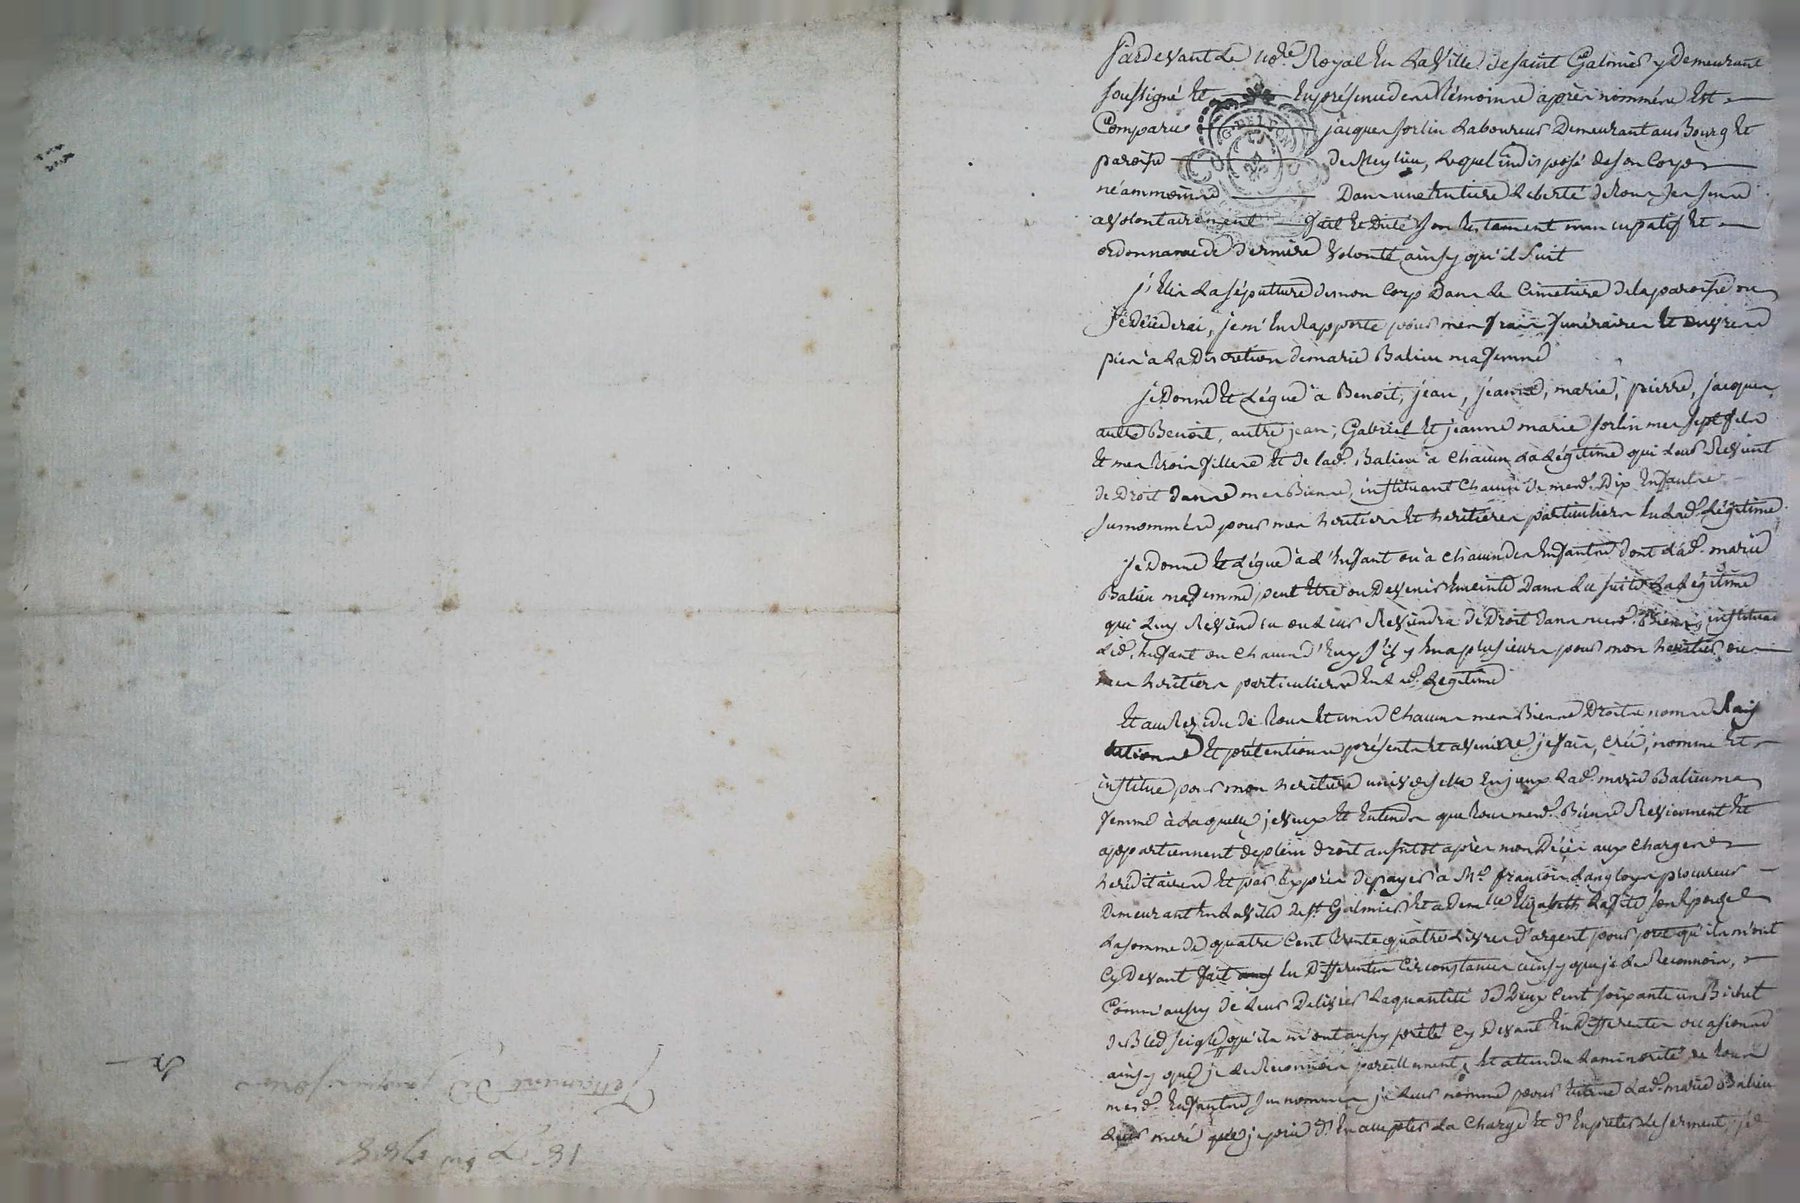 Pardevant Le no.re Royal En La Ville de saint Galmier y Demeurant
soussigné Et En présence des témoins après nommés Est
Comparu jacques sorlin Laboureur Demeurant au Bourg Et
paroisse de Meylieu, Lequel indisposé de son Corps
néammoins Dans une Entiere Liberté de tous ses sens
a volontairement fait Et Dicté son testament nuncupatif Et
ordonnance de derniere volonté ainsy qu'il suit
j'Elis La sépulture de mon Corp Dans Le Cimetiere de la paroisse ou
je décéderai, je m'En Rapporte pour mes frais funéraires Et
pies à La Discretion de marie Balieu ma femme
je Donne Et Légue à Benoit, jean, jeanne, marie, pierre, jacques,
autre Benoit, autre jean, Gabriel Et jeanne marie sorlin mes sept fils
Et mes trois filles Et de lad. Balieu à Chacun La Légitime qui Leur Revient
de Droit dans mes Biens, instituant Chacun de mesd. Dix Enfants
surnommés pour mes heritiers Et heritieres particuliers En Lad. Légitime
je Donne Et Légue à L'Enfant ou à Chacun des Enfants dont Lad. marie
Balieu ma femme peut Etre ou Devenir Enceinte Dans La suite La Légitime
qui Luy Reviendra ou Leur Reviendra de Droit dans mesd. Biens, instituant
Led. Enfant ou Chacun d'Eux s'il y En a plusieurs pour mon heritier ou
mes heritiers particuliers En Lad. Légitime
Et au Résidu de tous Et uns Chacuns mes Biens Droits noms
Et prétentions présents Et avenirs, je fais, crée, nomme Et
institue pour mon heritiere universelle Lad. marie Balieu ma
femme à Laquelle je veux Et Entends que tous mesd. Biens Reviennent Et
appartiennent de plein droit aussitot après mon Décès aux Charges
héréditaires Et par Exprès de payer à M.e françois Langlois procureur
Demeurant En La Ville de S.t Galmier Et à dem.lle Elizabeth son Epouse
La somme de quatre Cent trente quatre Livres d'argent pour pret qu'ils m'ont
Cy Devant fait En Differentes Circonstances ainsy que je Le Reconnois,
Comm'aussy de Leur Delivrer La quantité de Deux Cent soixante un Bichet
de Bled seigle qu'ils m'ont aussy prêté Cy Devant En Differentes occasions
ainsy que je Le Reconnois pareillement, Et attendu La minorité de tous
mesd. Enfants surnommés je Leur nomme pour tutrice Lad. marie Balieu
Leur mere que je prie d'En accepter La Charge Et d'En prêter Le serment, je
Testament De jacques sorlin